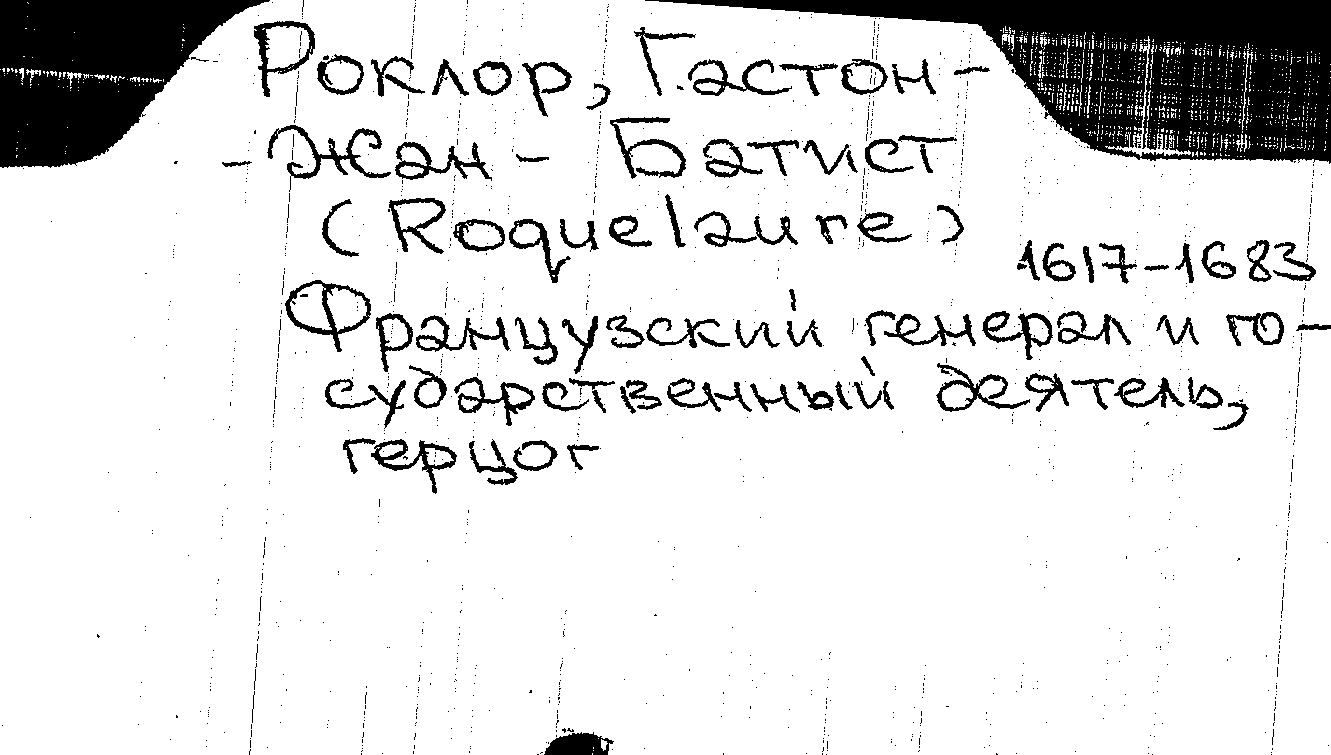 Роклор, Гастон-
-Жан-Батист
(Roquelaure)
1617-1683
Французский генерал и го-
сударственный деятель,
герцог